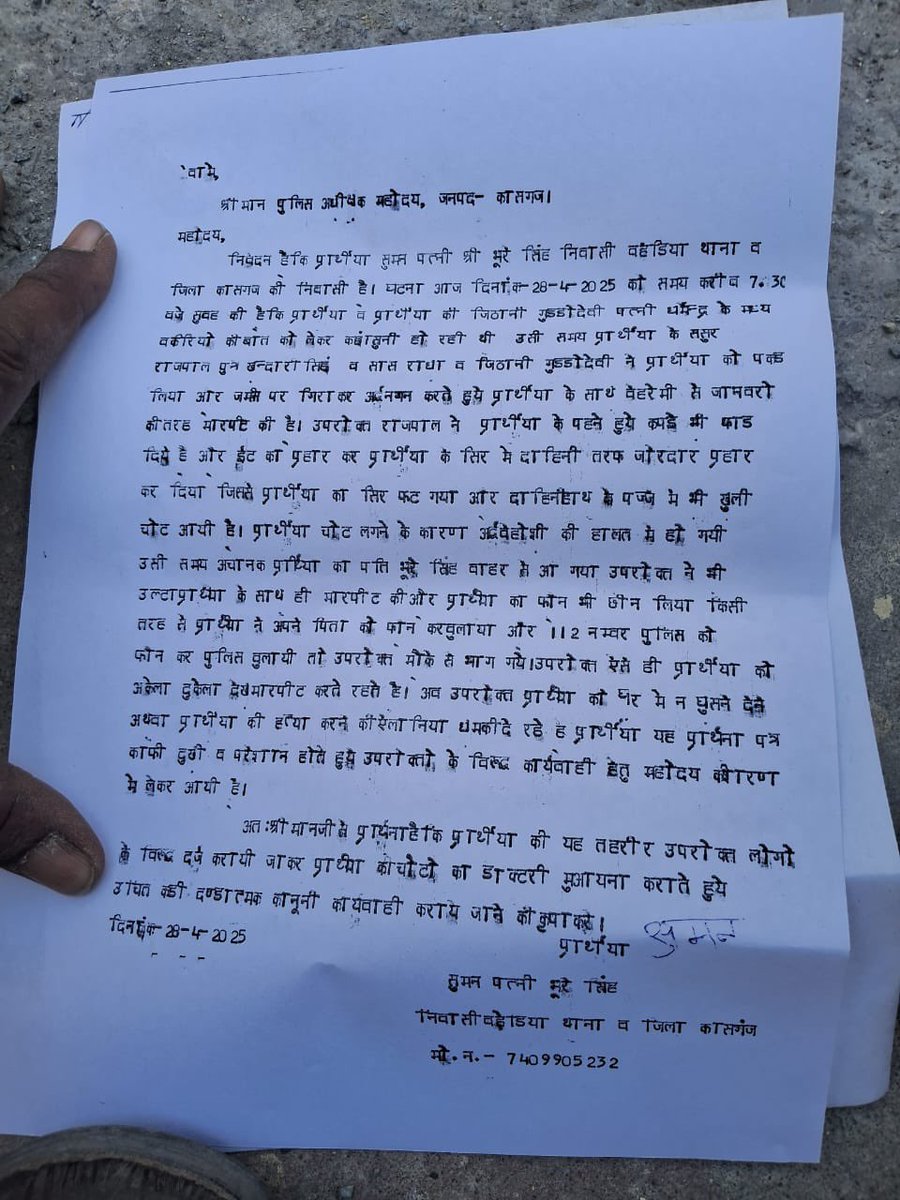 सेवा मे,
श्रीमान पुलिस अधीक्षक महोदय, जनपद- कासगज।
महोदय,
निवेदन हैकि प्रार्थीया सुमन पत्नी श्री भूरे सिंह निवासी वहेडिया थाना व
जिला कासगज की निवासी है। घटना आज दिनांक-28-4-2025 को समय करीव 7.30
वजे सुवह की हैकि प्रार्थीया व प्रार्थीया की जिठानी गुडडोदेवी पत्नी धर्मेन्द्र के मध्य
वकरियो कीबात को लेकर कहासुनी हो रही थी उसी समय प्रार्थीया के ससुर
राजपाल पुत्र छन्दारी सिंह व सास राधा व जिठानी गुडडोदेवी ने प्रार्थीया को पकड
लिया और जमी पर गिराकर अर्द्वनग्न करते हुये प्रार्थीया के साथ वेहरेमी से जानवरो
कीतरह मारपीट की है। उपरोक्त राजपाल ने प्रार्थीया के पहने हुये कपडे भी फाड
दिये है और ईट का प्रहार कर प्रार्थीया के सिर मे दाहिनी तरफ जोरदार प्रहार
कर दिया जिससे प्रार्थीया का सिर फट गया और दाहिनेहाथ के पज्जे मे भी खुली
चोट आयी है। प्रार्थीया चोट लगने के कारण अर्द्ववेहोशी की हालत मे हो गयी
उसी समय अचानक प्रार्थिया का पति भूरे सिंह वाहर से आ गया उपरोक्त ने भी
उल्टाप्रार्थिया के साथ ही मारपीट कीऔर प्रार्थिया का फोन भी छीन लिया किसी
तरह से प्रार्थिया ने अपने पिता को फोन करवुलाया और 112 नम्वर पुलिस को
फोन कर पुलिस वुलायी तो उपरोक्त मौके से भाग गये।उपरोक्त ऐसे ही प्रार्थीया को
अकेला दुकेला देखमारपीट करते रहते है। अव उपरोक्त प्रार्थिया को घर मे न घुसने देने
अथवा प्रार्थीया की हत्या करने की ऐलानिया धमकीदे रहे है प्रार्थीया यह प्रार्थना पत्र
काफी दुखी व परेशान होते हुये उपरोक्तो के विरुद्ध कार्यवाही हेतु महोदय की शरण
मे लेकर आयी है।
अतःश्रीमानजी से प्रार्थनाहैकि प्रार्थीया की यह तहरीर उपरोक्त लोगो
के विरुद्ध दर्ज करायी जाकर प्रार्थिया की चोटो का डाक्टरी मुआयना कराते हुये
उचित कडी दण्डात्मक कानूनी कार्यवाही कराये जाने की कृपा करे।
दिनांक-28-4-2025
प्रार्थीया सुमन
सुमन पत्नी भूरे सिंह
निवासी वहेडिया थाना व जिला कासगंज
मो.न.- 7409905232